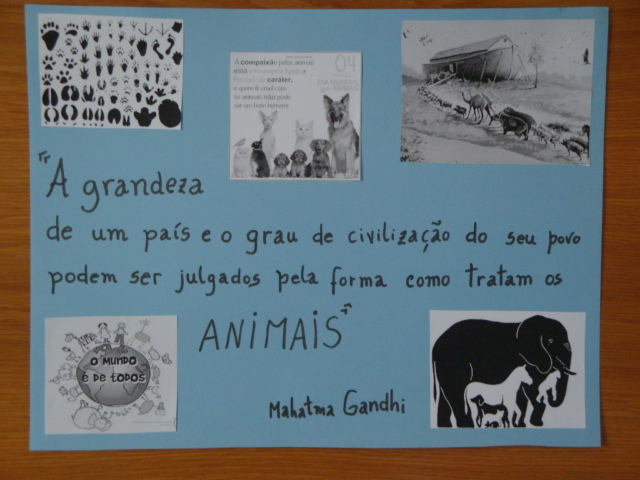 A compaixão pelos animais
está intimamente ligada a
bondade de caráter,
e quem é cruel com
os animais não pode
ser um bom homem
04
"A grandeza
de um país e o grau de civilização do seu povo
podem ser julgados pela forma como tratam os
ANIMAIS"
O MUNDO
É DE TODOS
Mahatma Gandhi